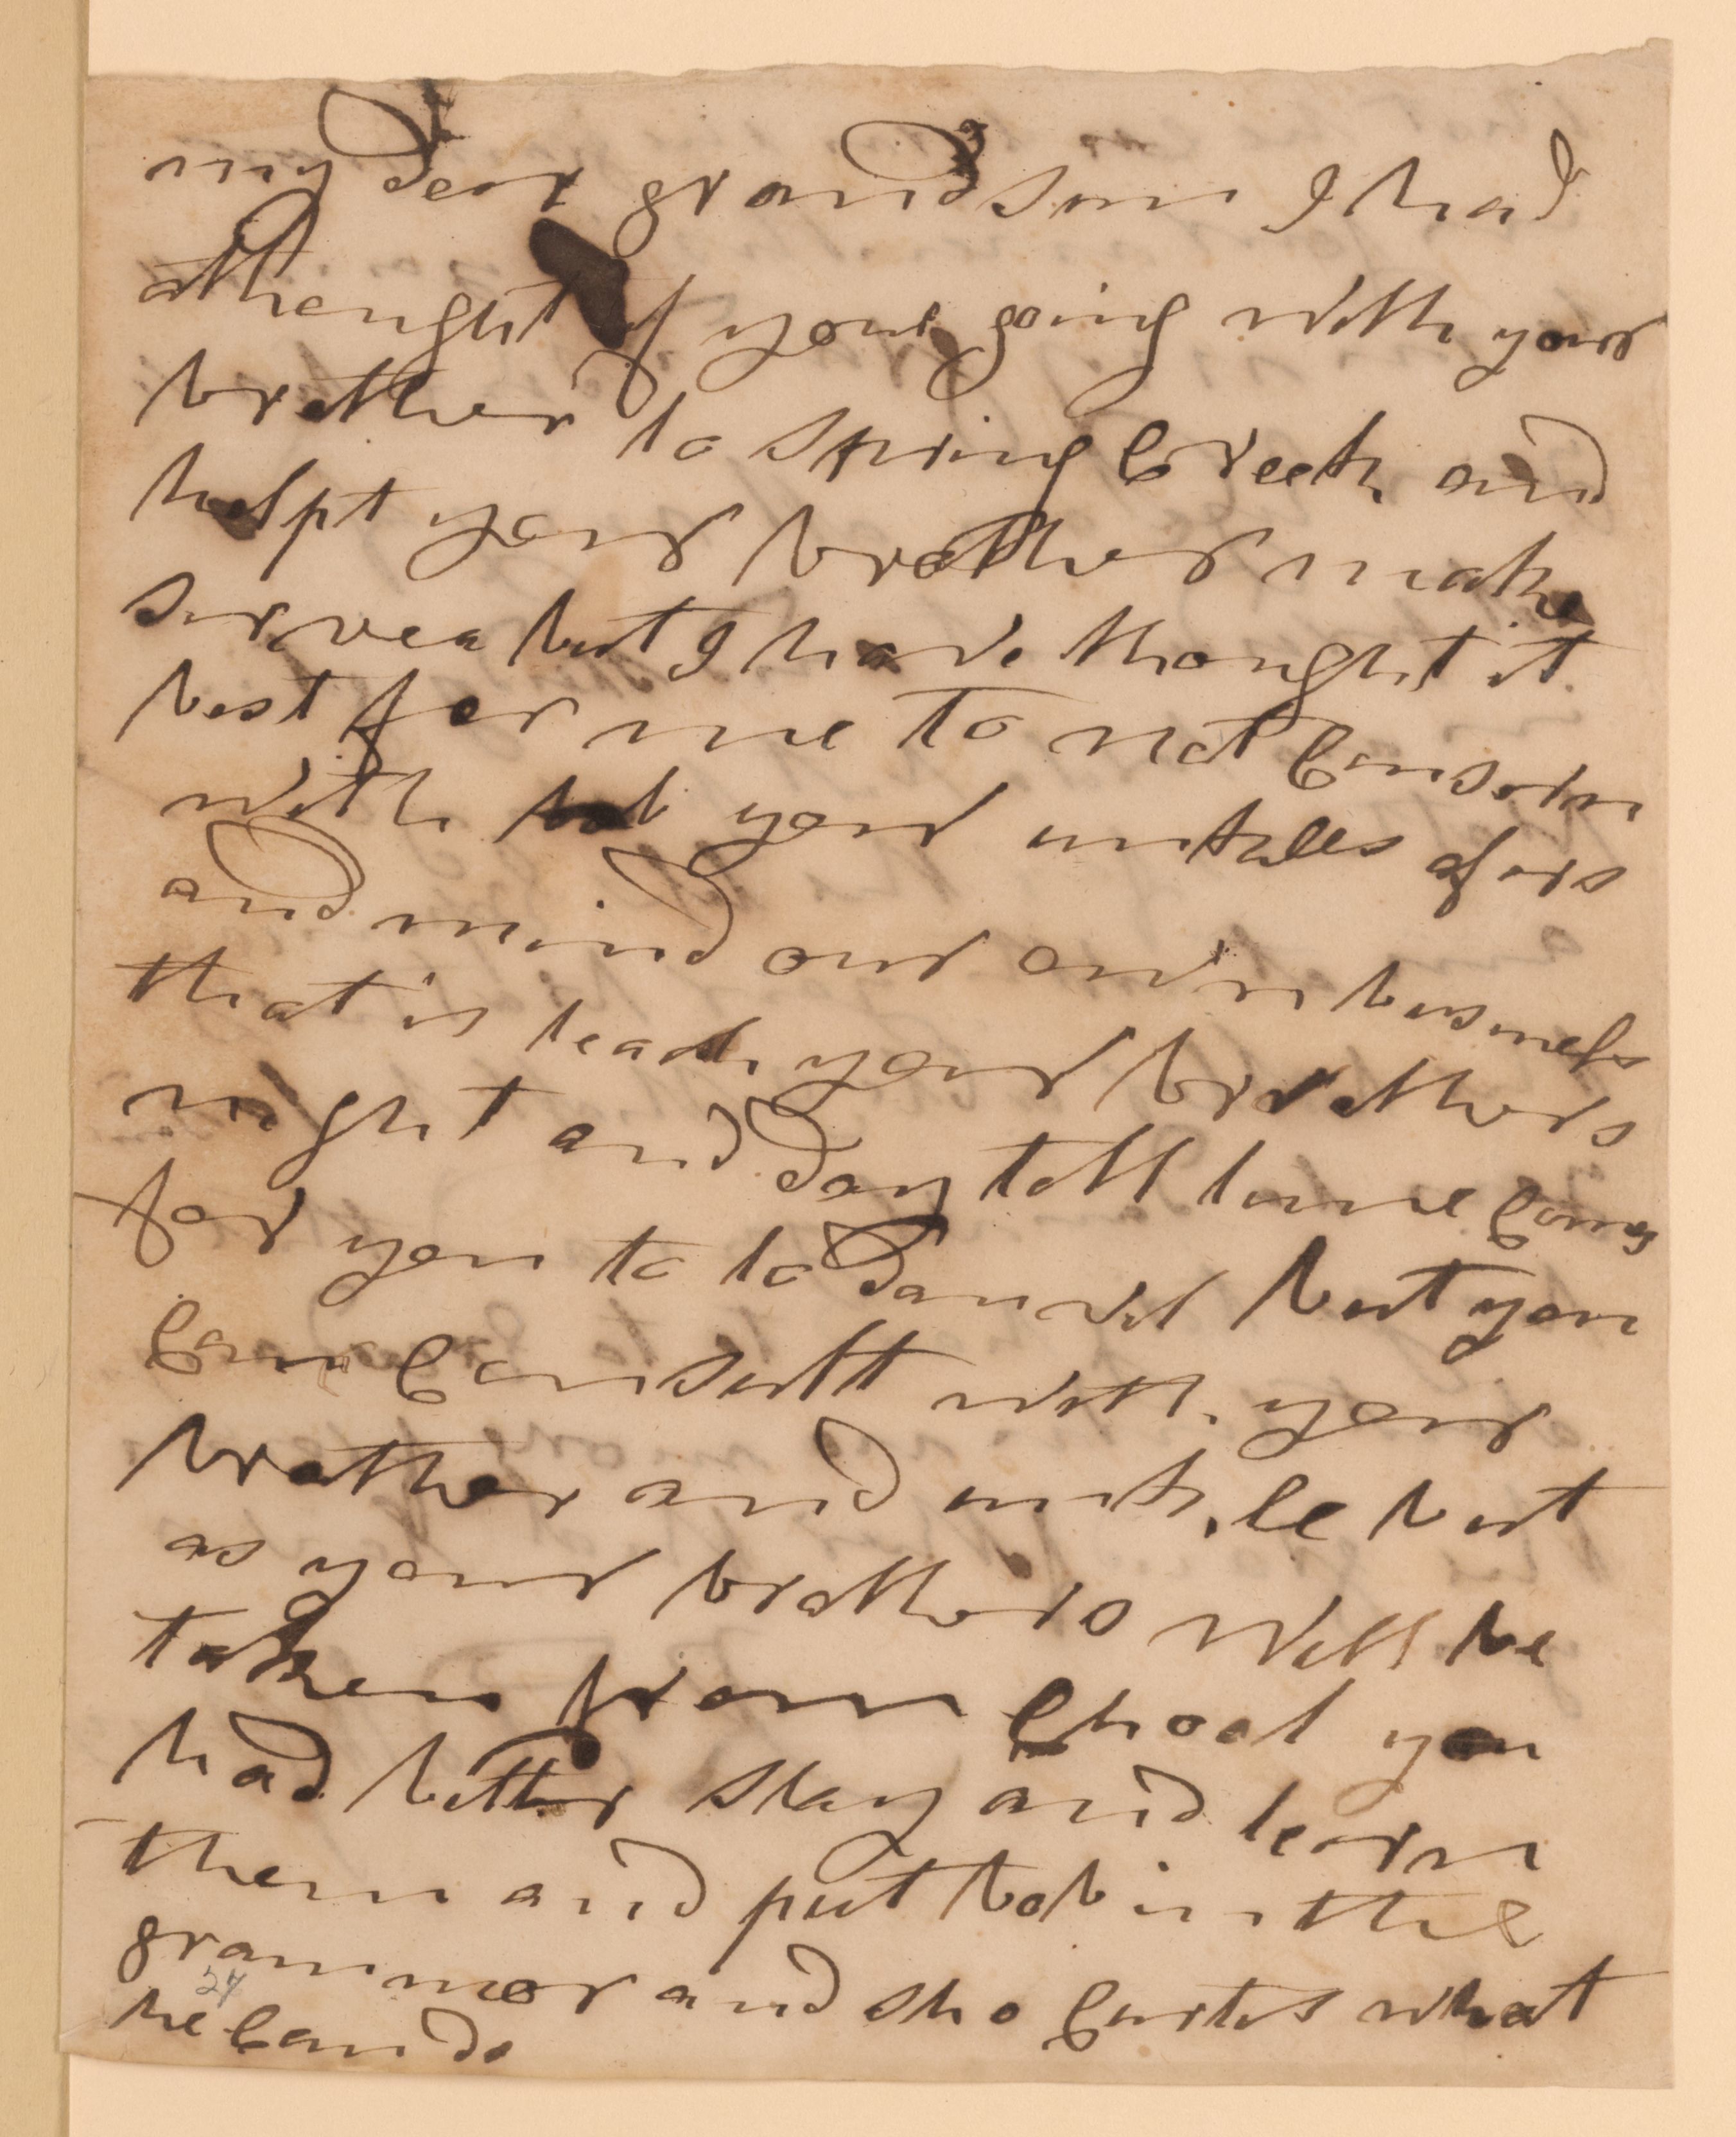 my dear grandson I had
athought of your going with your
brother to spring Creek and
helpt your brother make
survea but I have thought it
best for me to not Consern
with your unkles afars
and mind our own business
that is teach your brothers
night and day tell time Comes
for you to to danvil but you
Can Consult with your
brother and unkle but
as your brothers will be
taken from Chool you
had better stay and learn
them and put bob in the
grammer and sho Curtis what
he Can do
24